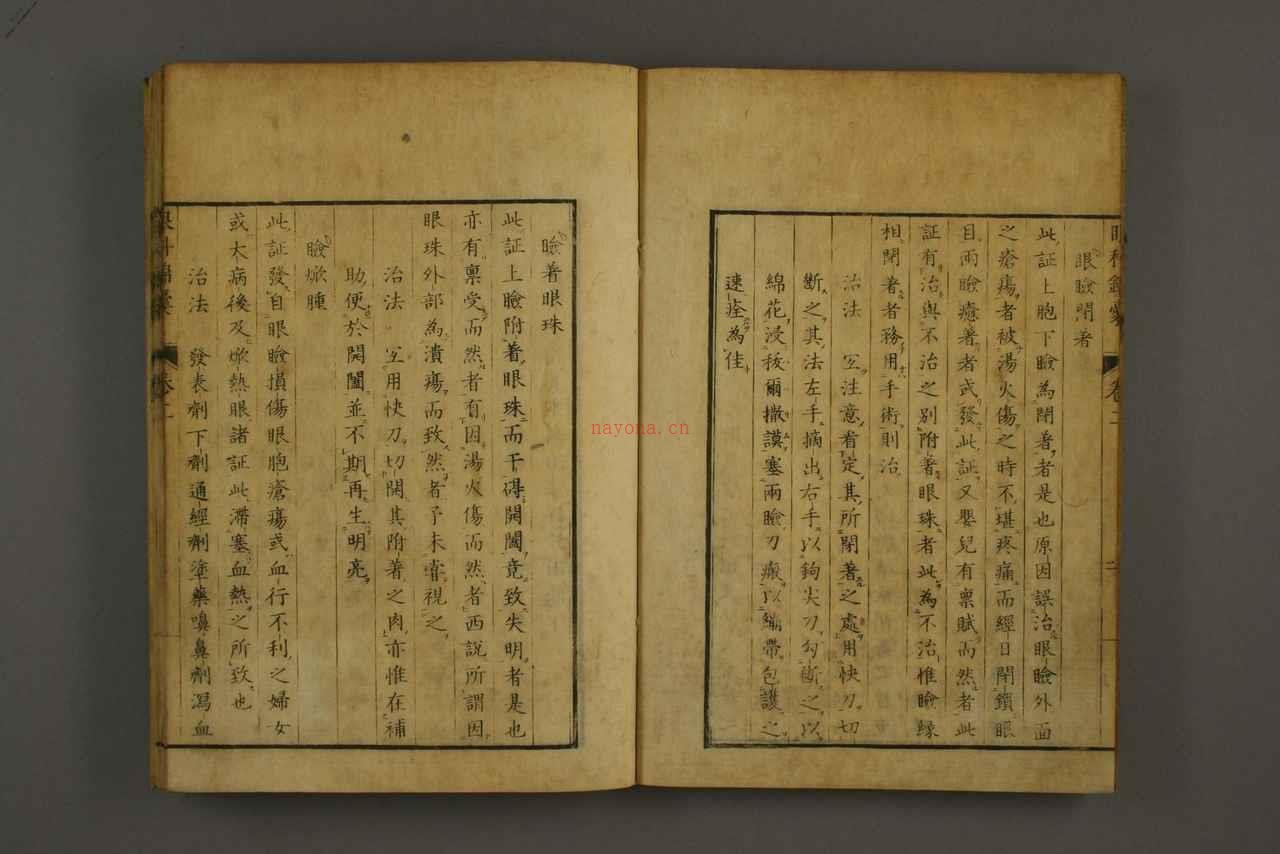 眼瞼閉著
此証上胞下瞼為閉著者是也原因誤治眼瞼外面
之瘡瘍者被湯火傷之時不堪疼痛而經日閉鎖眼
目兩瞼癒著者或發此証又嬰兒有稟賦而然者此
証有治與不治之別附著眼珠者此為不治惟瞼緣
相閉著者務用手術則治
治法 宜注意看定其所閉著之處用快刀切
斷之其法左手摘出右手以鉤尖刀勾斷之以
綿花浸撥爾撒謨塞兩瞼刀瘢以繃帶包護之
速痊為佳
卷二
二
瞼著眼珠
此証上瞼附著眼珠而干碍開闔竟致失明者是也
亦有稟受而然者有因湯火傷而然者西說所謂因
眼珠外部為潰瘍而致然者予未嘗視之
治法 宜用快刀切開其附著之肉亦惟在補
助便於開闔並不期再生明亮
瞼焮腫
此証發自眼瞼損傷眼胞瘡瘍或血行不利之婦女
或大病後及焮熱眼諸証此滯塞血熱之所致也
治法 發表劑下劑通經劑塗藥嗅鼻劑瀉血
卷二
nayona.cn